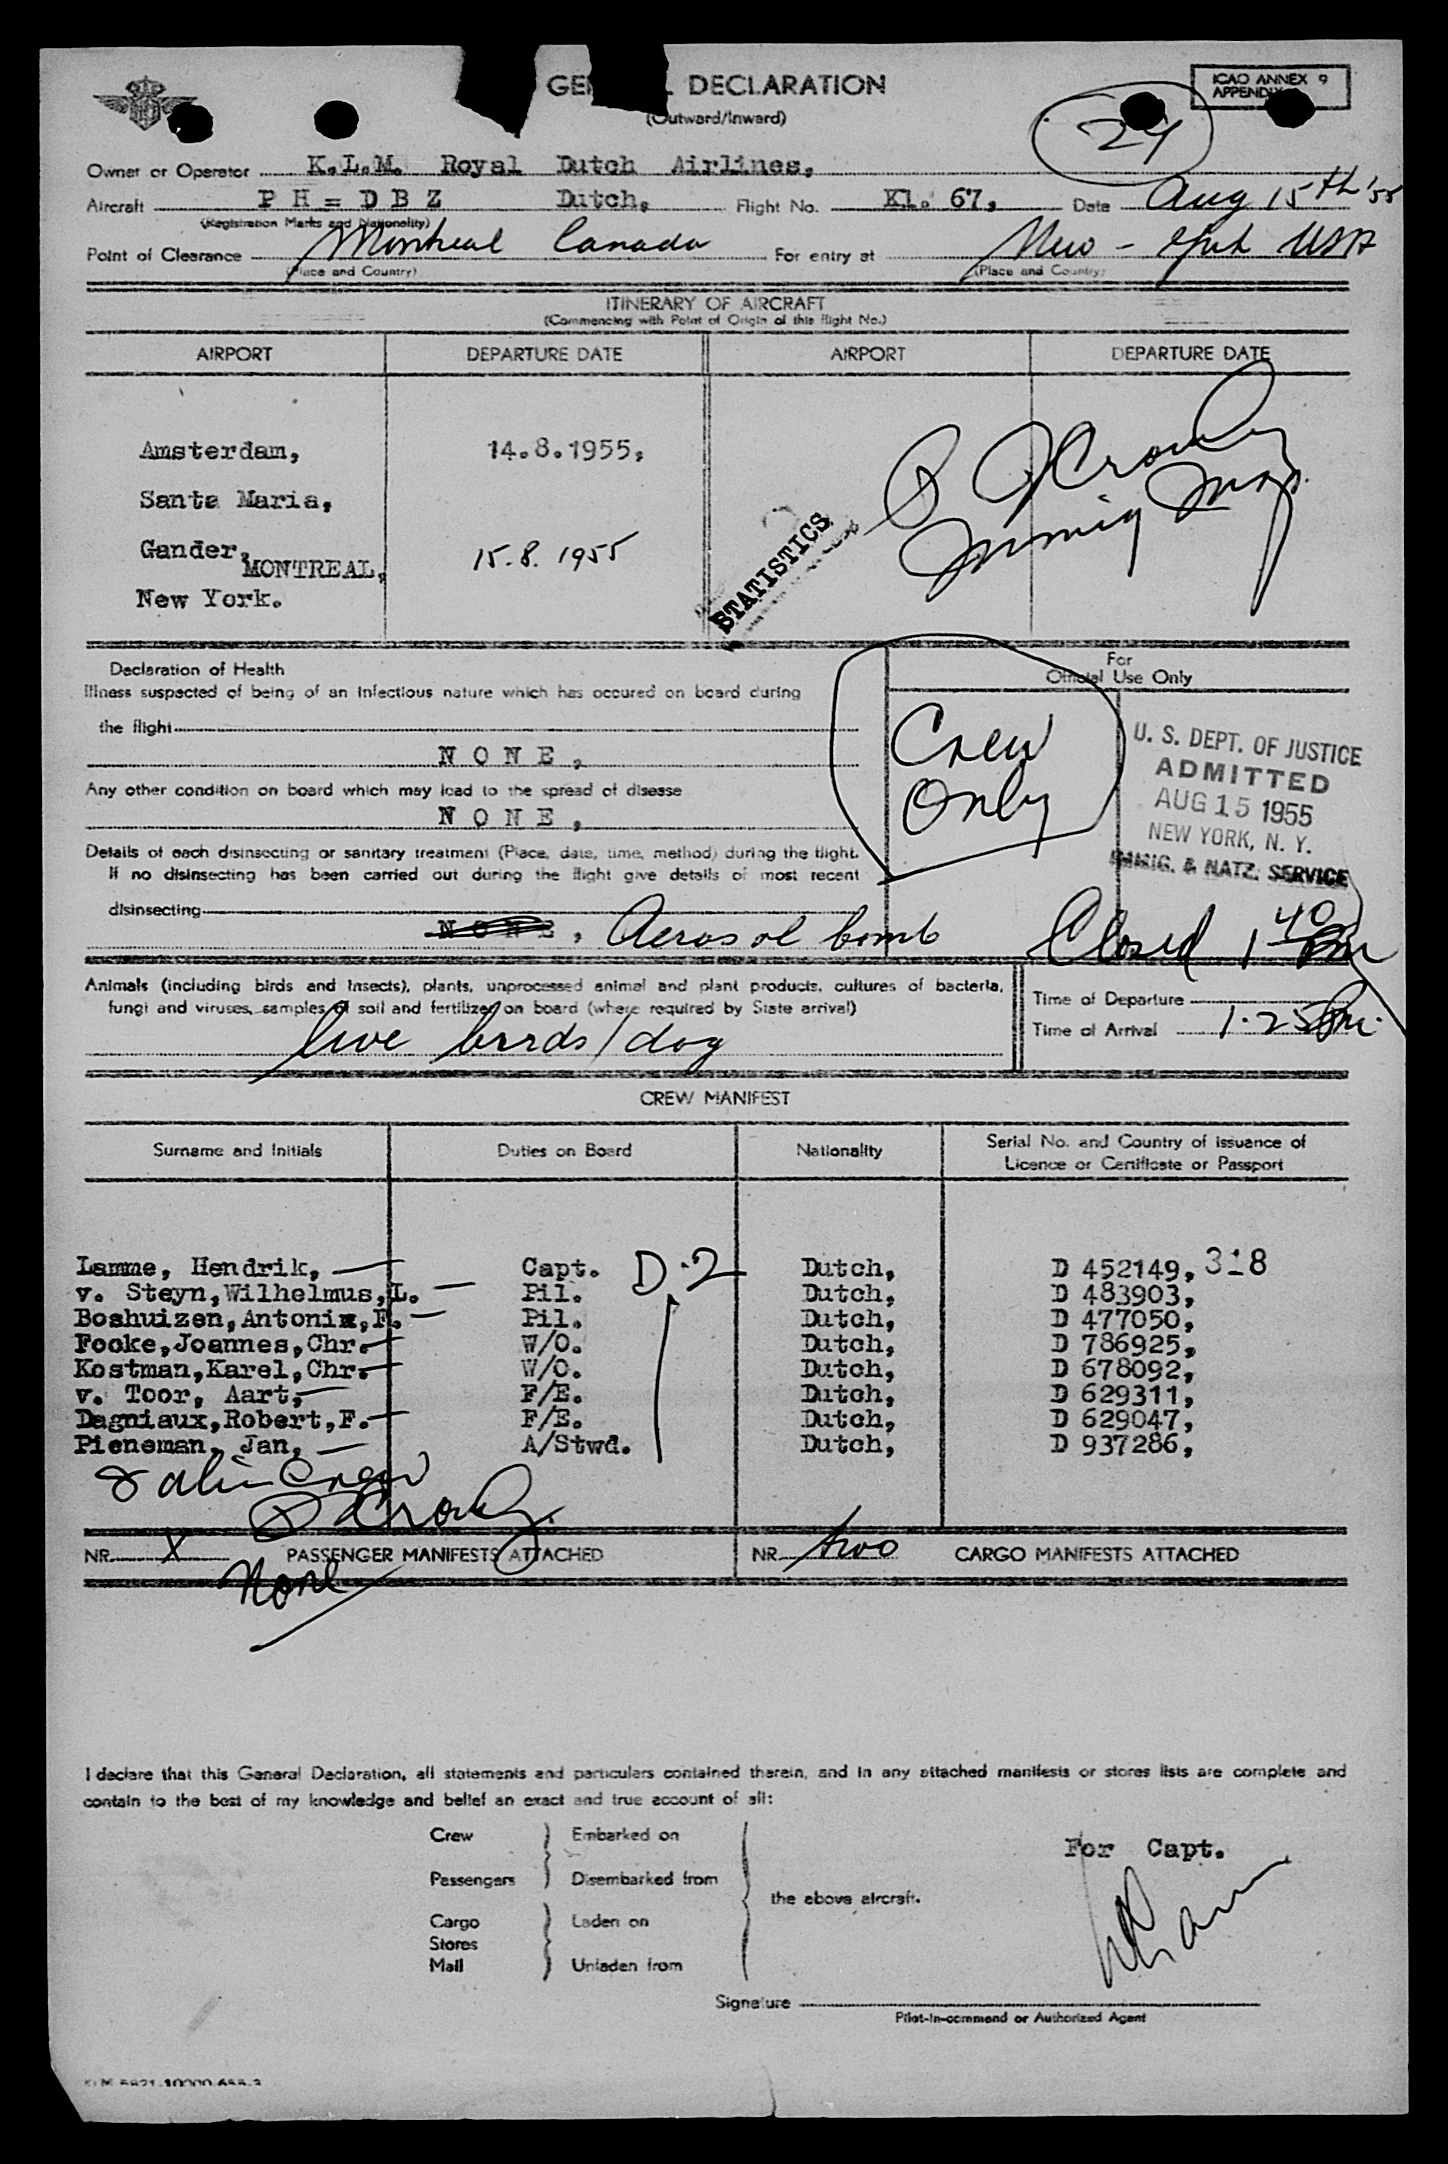 GE L DECLARATION
(Outward/Inward)
ICAO ANNEX 9
APPENDIX
24
Owner or Operator K.L.M. Royal Dutch Airlines,
Aircraft P H = D B Z Dutch, Flight No. Kl. 67, Date Aug 15th '55
(Registration Marks and Nationality)
Point of Clearance Montreal Canada For entry at New-York USA
(Place and Country) (Place and Country)
ITINERARY OF AIRCRAFT
(Commencing with Point of Origin of this flight No.)
AIRPORT DEPARTURE DATE AIRPORT DEPARTURE DATE
Amsterdam, 14.8.1955,
Santa Maria,
Gander,
MONTREAL, 15.8.1955
New York.
STATISTICS
Immig Insp.
Declaration of Health
Illness suspected of being of an infectious nature which has occured on board during
the flight
N O N E ,
Any other condition on board which may lead to the spread of disease
N O N E ,
Details of each disinsecting or sanitary treatment (Place, date, time, method) during the flight.
If no disinsecting has been carried out during the flight give details of most recent
disinsecting
N O N E , Aerosol bomb
For
Official Use Only
Crew
Only
U. S. DEPT. OF JUSTICE
ADMITTED
AUG 15 1955
NEW YORK, N. Y.
IMMIG. & NATZ. SERVICE
Closed 1 40 Pm
Animals (including birds and insects), plants, unprocessed animal and plant products, cultures of bacteria,
fungi and viruses, samples of soil and fertilizer on board (where required by State arrival)
live birds / dog
Time of Departure
Time of Arrival 1.25 Pm.
CREW MANIFEST
Surname and Initials Duties on Board Nationality Serial No. and Country of issuance of
Licence or Certificate or Passport
Lamme, Hendrik, Capt. D-2 Dutch, D 452149, 318
v. Steyn,Wilhelmus,L. Pil. Dutch, D 483903,
Boshuizen,Antonix,F. Pil. Dutch, D 477050,
Focke,Joannes,Chr. W/O. Dutch, D 786925,
Kostman,Karel,Chr. W/O. Dutch, D 678092,
v. Toor, Aart, F/E. Dutch, D 629311,
Dagniaux,Robert,F. F/E. Dutch, D 629047,
Pieneman, Jan, A/Stwd. Dutch, D 937286,
8 alien Crew
NR. X PASSENGER MANIFESTS ATTACHED NR. two CARGO MANIFESTS ATTACHED
None
I declare that this General Declaration, all statements and particulars contained therein, and in any attached manifests or stores lists are complete and
contain to the best of my knowledge and belief an exact and true account of all:
Crew Embarked on
Passengers Disembarked from
the above aircraft.
Cargo Laden on
Stores
Mail Unladen from
For Capt.
Signature
Pilot-in-command or Authorized Agent
KLM 5821-10000-655-3